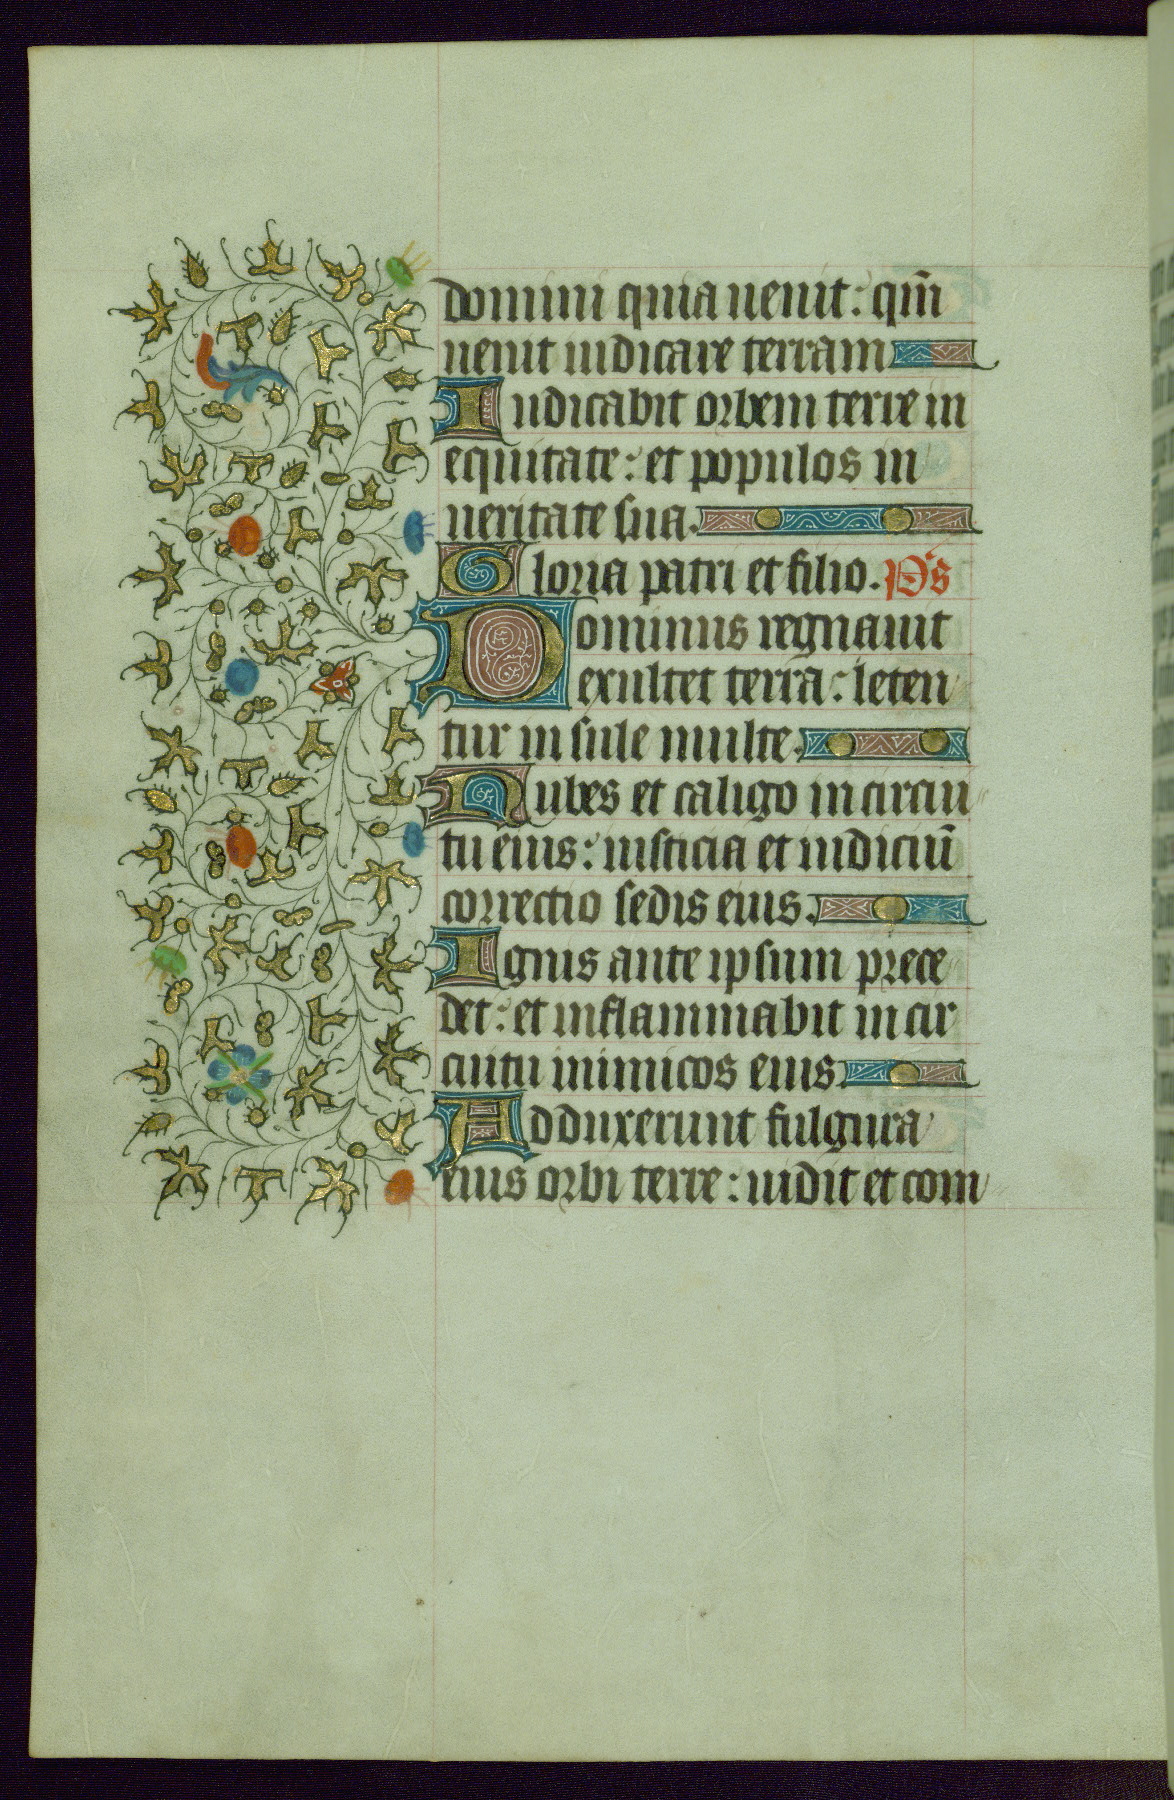 domini quia uenit: qm̄
uenit iudicare terram
Iudicabit orbem terre in
equitate: et populos in
ueritate sua.
Gloria patri et filio. Ps
Dominus regnauit
exultet terra: leten
tur insule multe.
Nubes et caligo in circui
tu eius: iusticia et iudiciū
correctio sedis eius.
Ignis ante ipsum prece
det: et inflammabit in cir
cuitu inimicos eius
Adduxerunt fulgura
eius orbi terre: uidit et com